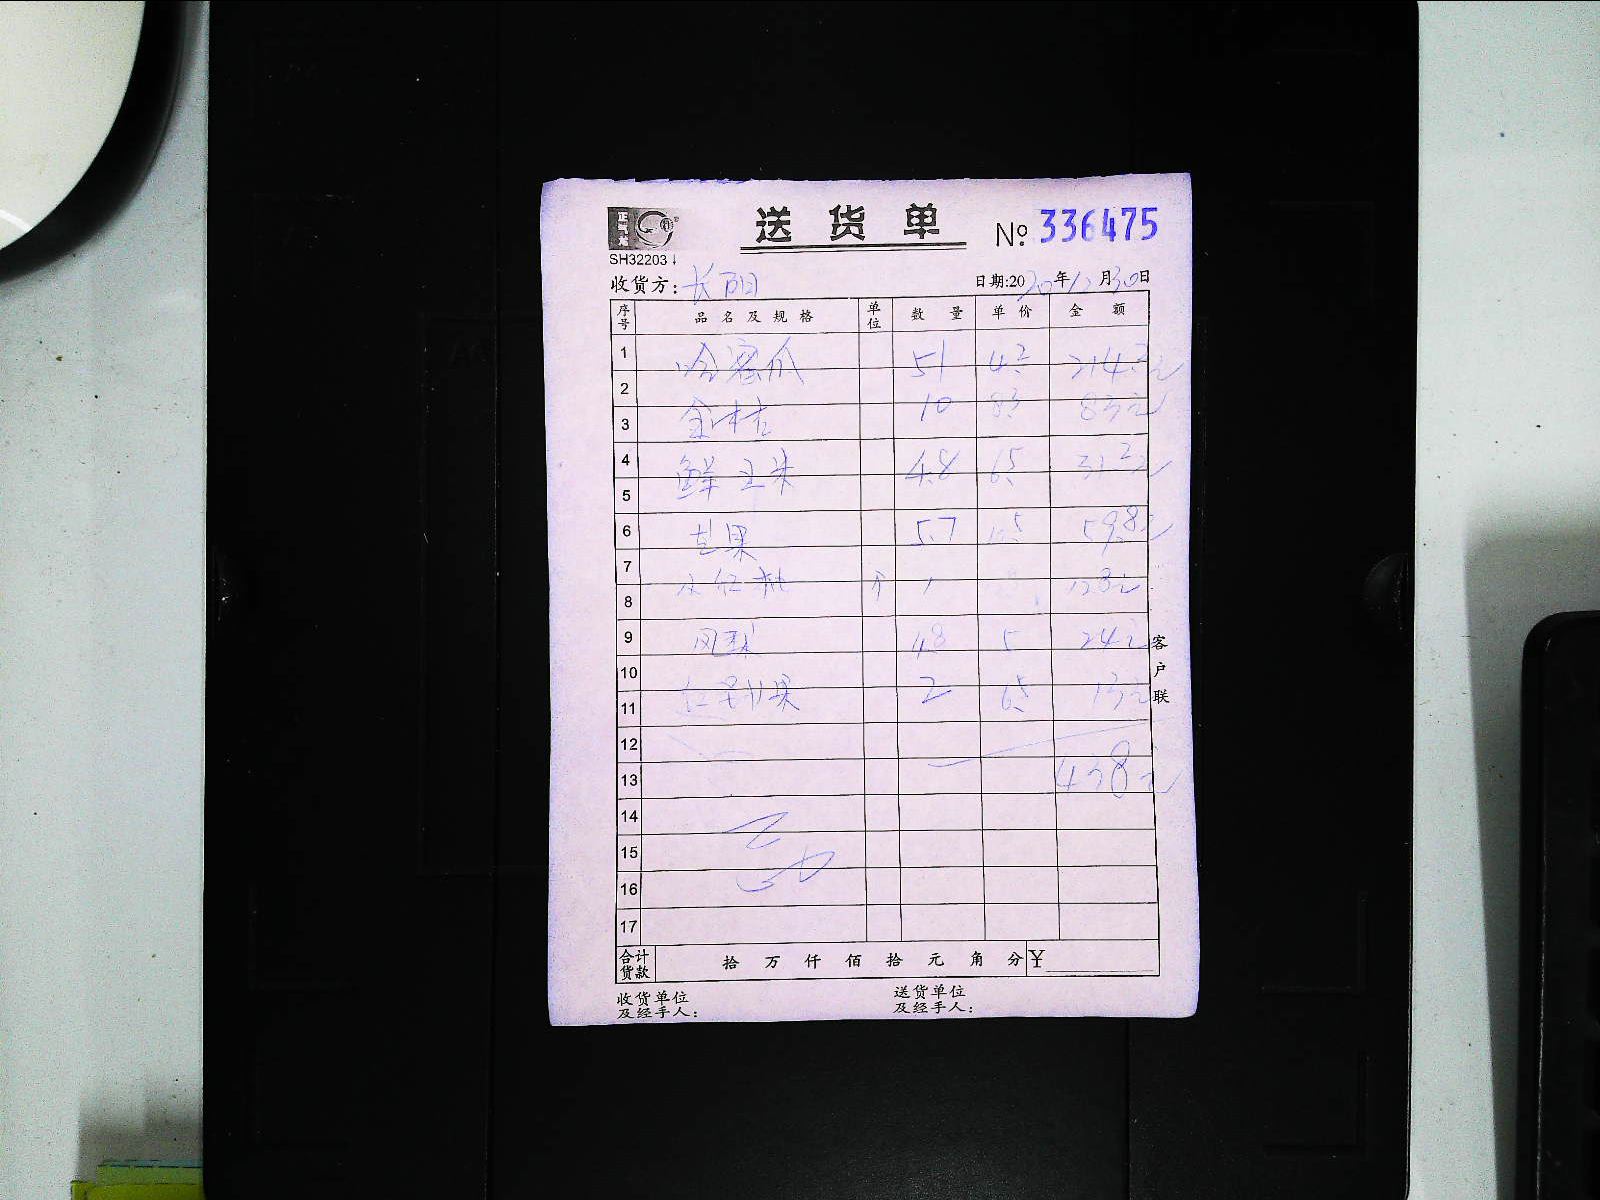 正气龙
送货单 №336475
SH32203
收货方: 长阳 日期:2020年12月30日
序号 品名及规格 单位 数量 单价 金额
1 哈密瓜 51 4.2 214.2元
2
3 金桔 10 8.3 83元
4 鲜玉米 4.8 6.5 31.2元
5
6 芒果 5.7 10.5 59.8元
7
8 个 1 12.8元
9 凤梨 4.8 5 24元
10
11 2 6.5 13元
12
13 438元
14
15
16
17
合计货款 拾 万 仟 佰 拾 元 角 分 ¥
收货单位及经手人: 送货单位及经手人:
客户联